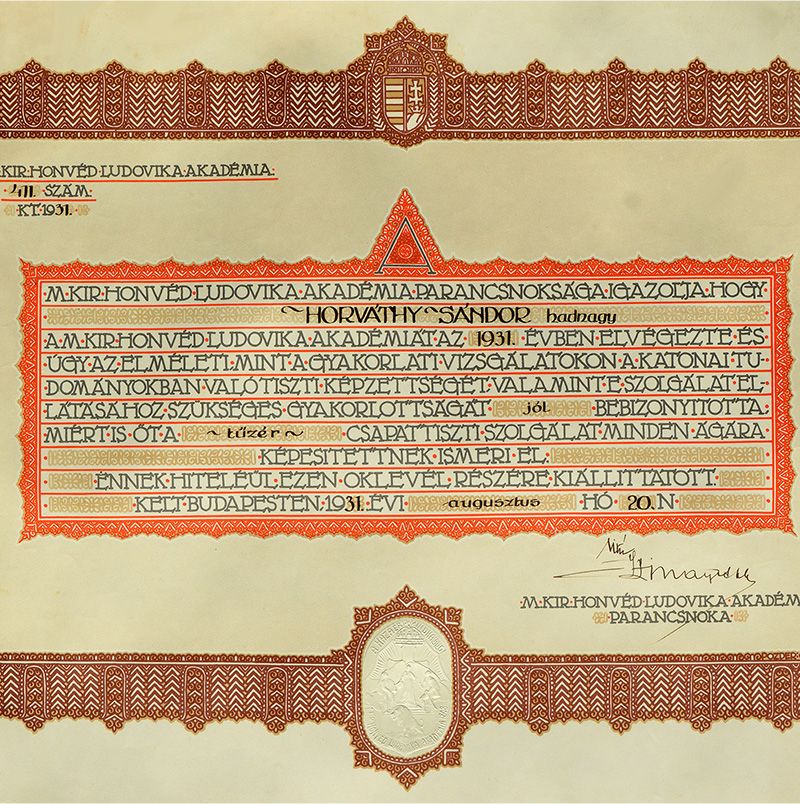 KIR·HONVÉD·LUDOVIKA·AKADÉMIA·
·411. SZÁM·
·KT·1931.·
A
·M·KIR·HONVÉD·LUDOVIKA·AKADÉMIA·PARANCSNOKSÁGA·IGAZOLJA·HOGY
~HORVÁTHY~SÁNDOR hadnagy
A·M·KIR·HONVÉD·LUDOVIKA·AKADÉMIÁT·AZ 1931. ÉVBEN·ELVÉGEZTE·ÉS·
ÚGY·AZ·ELMÉLETI·MINT·A·GYAKORLATI·VIZSGÁLATOKON·A·KATONAI·TU-
DOMÁNYOKBAN·VALÓ·TISZTI·KÉPZETTSÉGÉT·VALAMINT·E·SZOLGÁLAT·EL-
LÁTÁSÁHOZ·SZÜKSÉGES·GYAKORLOTTSÁGÁT jól BEBIZONYÍTOTTA;
MIÉRT·IS·ŐT·A ~tüzér~ CSAPATTISZTI·SZOLGÁLAT·MINDEN·ÁGÁRA
KÉPESÍTETTNEK·ISMERI·EL.
ENNEK·HITELÉÜL·EZEN·OKLEVÉL·RÉSZÉRE·KIÁLLÍTTATOTT.
KELT·BUDAPESTEN·1931·ÉVI augusztus HÓ 20.N
·M·KIR·HONVÉD·LUDOVIKA·AKADÉM
PARANCSNOKA·